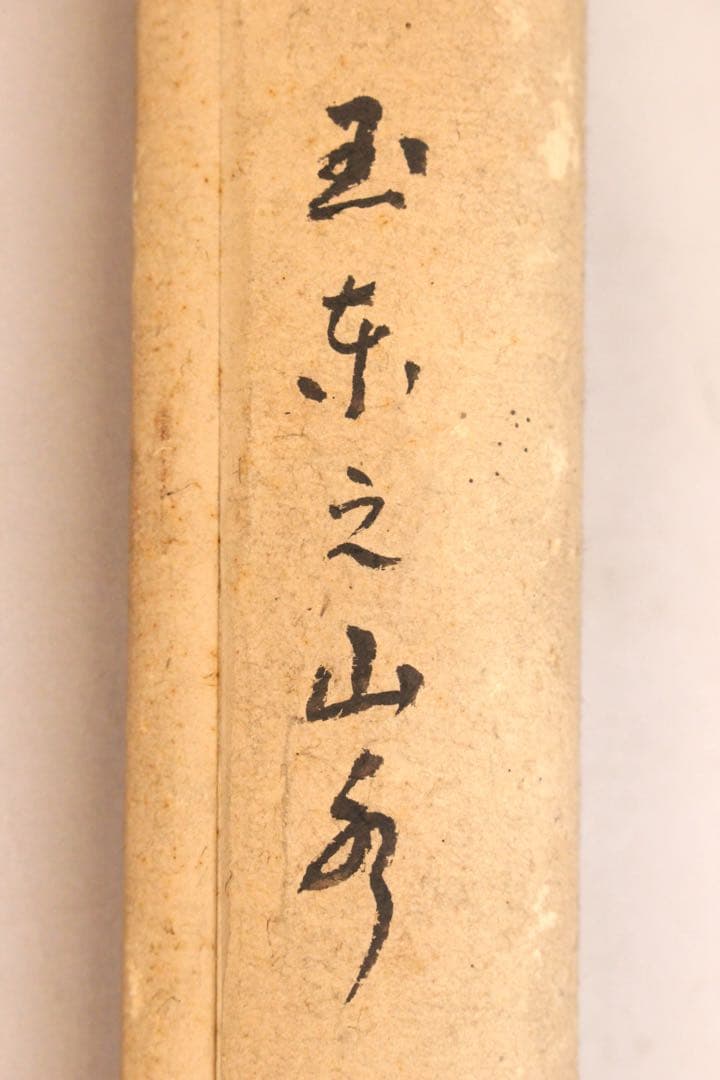 玉東之山水